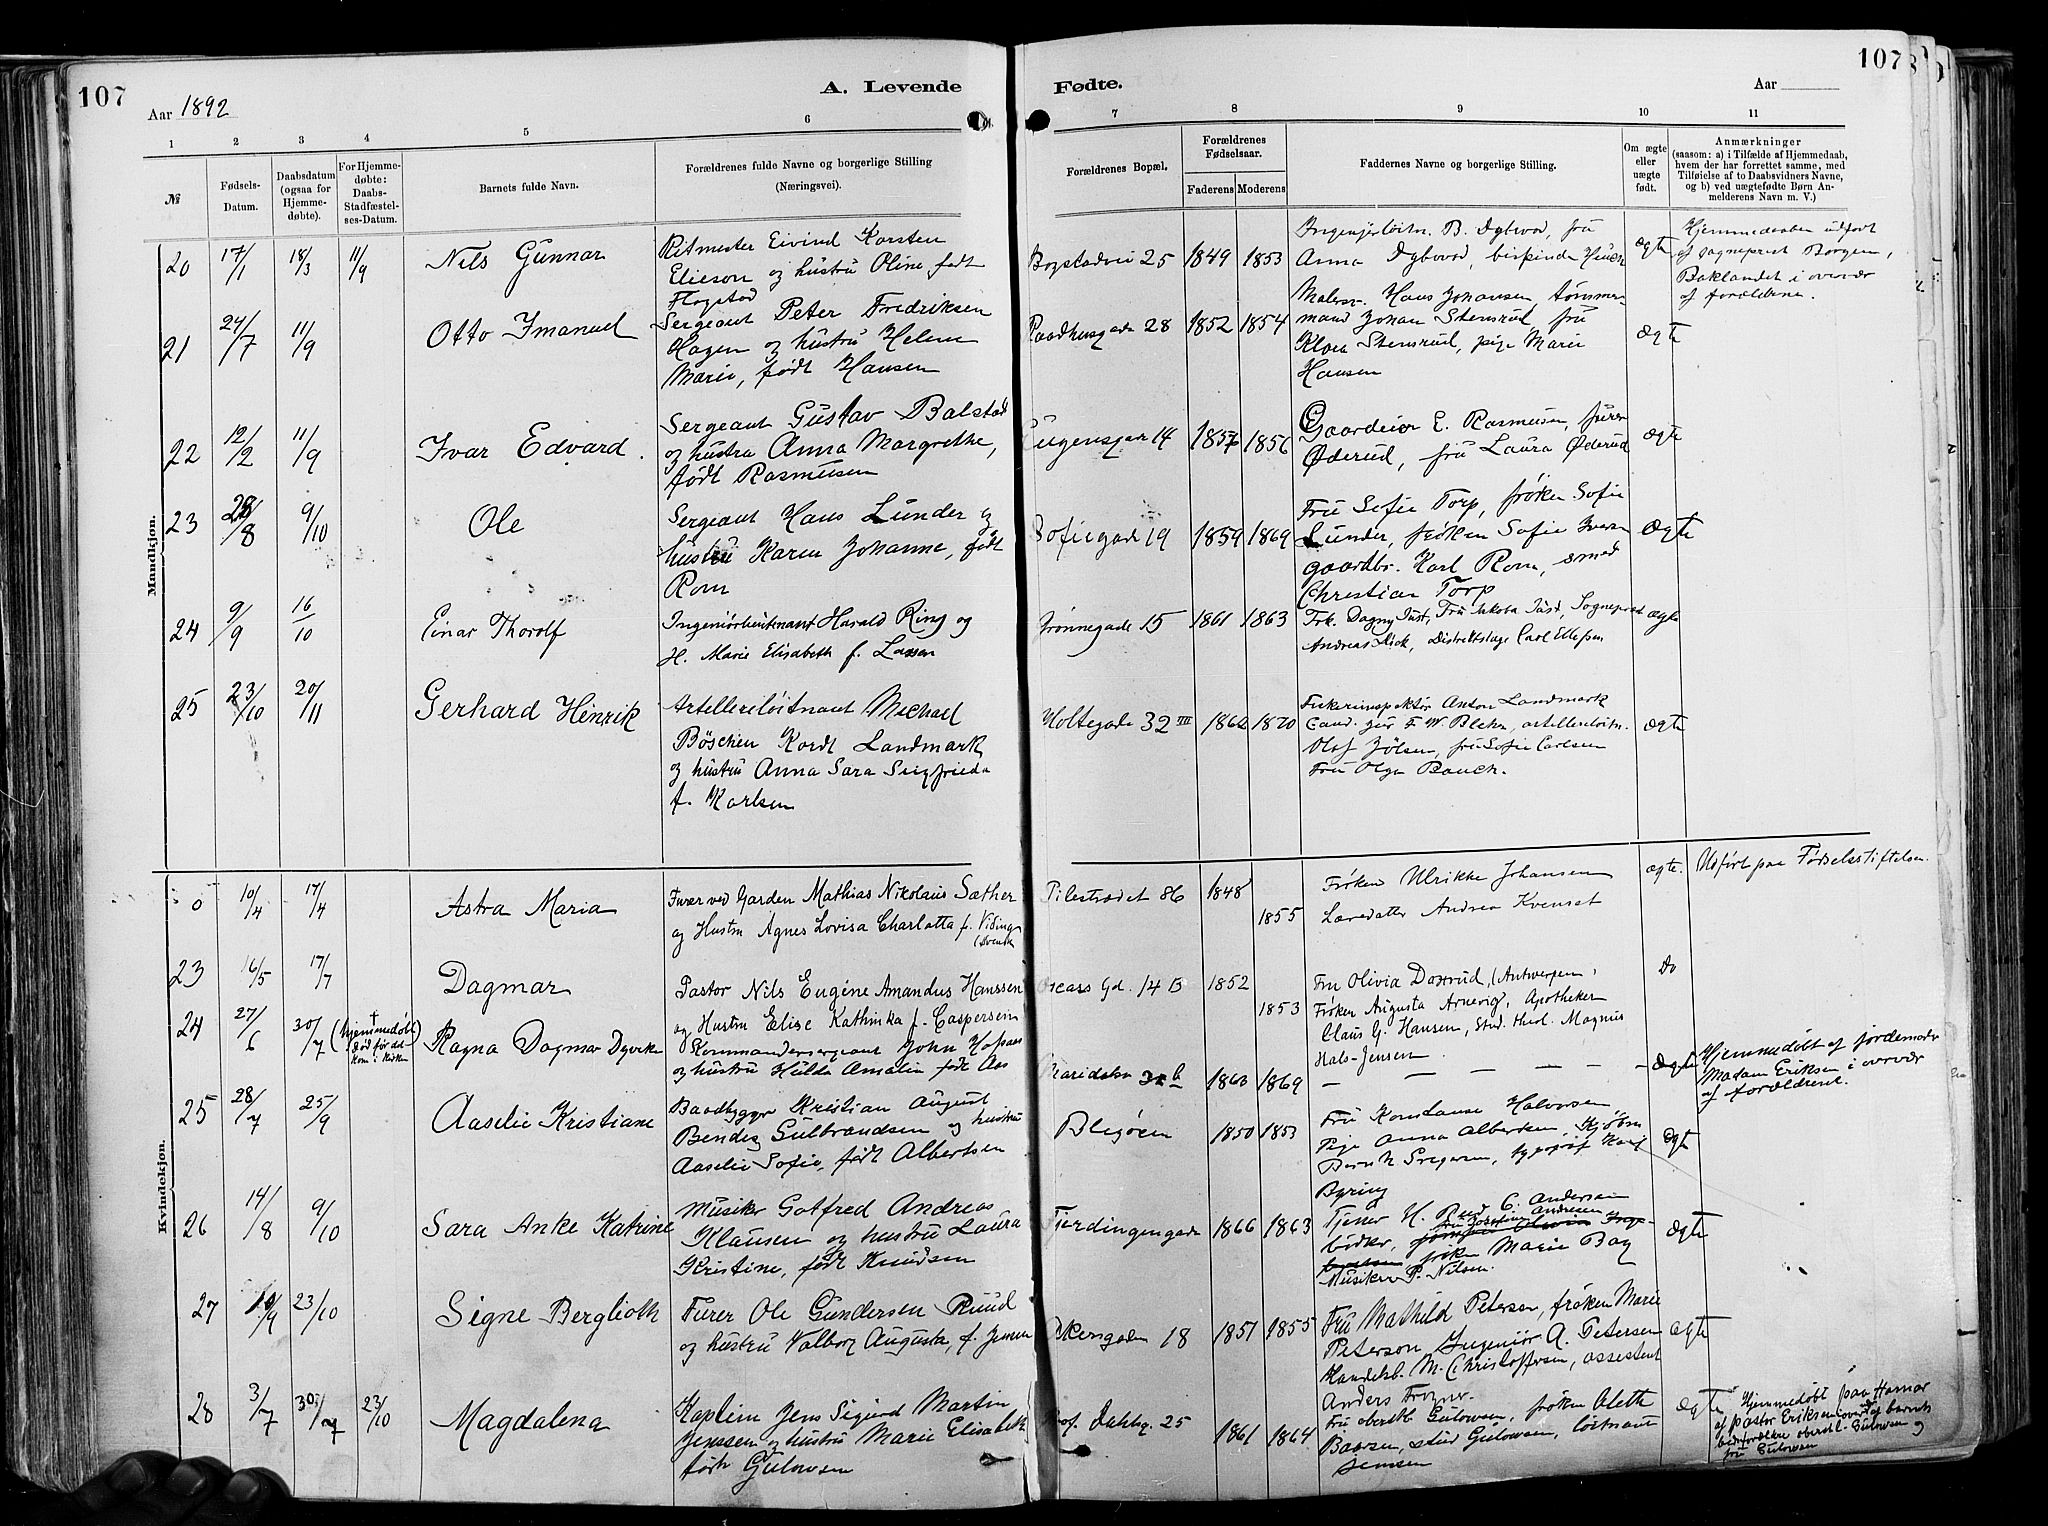 107
Aar 1892
A. Levende
Fødte.
Aar
107
1 2 3 4 5 6 7 8 9 10 11
№
Fødsels-Datum.
Daabsdatum (ogsaa for Hjemme-døbte).
For Hjemme-døbte: Daabs-Stadfæstel-ses-Datum.
Barnets fulde Navn.
Forældrenes fulde Navne og borgerlige Stilling
(Næringsvei).
Forældrenes Bopæl.
Forældrenes Fødselsaar.
Faderens Moderens
Faddernes Navne og borgerlige Stilling
Om ægte eller uægte født.
Anmærkninger
(saasom: a) i Tilfælde af Hjemmedaab,
hvem der har forrettet samme, med
Tilføielse af to Daabsvidners Navne,
og b) ved uægtefødte Børn An-
melderens Navn m. V.)
Mandkjøn.
20 17/1 18/3 11/9 Nils Gunnar
Ritmester Eivind Karsten
Elieson og hustru Oline født
Flogstad
Bogstadvei 25 1849 1853
Anna Dybwad,
ægte
Hjemmedaaben udført
af sogneprest Borgen,
Baklandet i overvær
af forældrene.
21 24/7 11/9 Otto Imanuel
Sergeant Peter Fredriksen
Hagen og hustru Helene
Marie, født Hansen
Raadhusgade 28 1852 1854
Malersv. Hans Johansen, tømmer-
mand Johan Stensrud, fru
Klara Stensrud, pige Marie
Hansen
ægte
22 12/2 11/9 Ivar Edvard.
Sergeant Gustav Balstad
og hustru Anna Margrethe,
født Rasmusen
Eugeniagade 14 1857 1856
Gaardeier E. Rasmusen, furer
Øderud, fru Laura Øderud
ægte
23 28/8 9/10 Ole
Sergeant Hans Lunder og
hustru Karen Johanne, født
Rom
Sofiegade 19 1859 1869
Fru Sofie Torp, frøken Sofie
Lunder, frøken Sofie Iversen
gaardbr. Karl Rom, smed
Christian Torp
ægte
24 9/9 16/10 Einar Thorolf
Ingeniørleutenant Harald Ring og
H. Marie Elisabeth f. Lassen
Grønnegade 15 1861 1863
Frk. Dagny Just, Fru Jakoba Just, Sogneprest
Andreas Kick, Distriktslæge Carl Ellefsen
ægte
25 23/10 20/11 Gerhard Henrik
Artelleriløitnant Michael
Böschen Kordt Landmark
og hustru Anna Sara Sigfrieda
f. Karlsen
Holtegade 32 III 1862 1870
Fiskeriinspektør Anton Landmark
Cand. jur F. W. artelleriløitn.
Olaf Jølsen, fru Sofie Carlsen
Fru Olga Bauck.
ægte
Kvindekjøn.
0 10/4 17/4 Astra Maria
Furer ved Garden Mathias Nikolaus Sæther
og Hustru Agnes Lovisa Charlotta f. Viding
(svensk
Pilestrædet 86 1848 1855
Frøken Ulrikke Johansen
Andrea Kvenset
ægte.
Udført paa Fødselsstiftelsen.
23 16/5 17/7 Dagmar
Pastor Nils Eugéne Amandus Hanssen
og Hustru Elise Kathinka f. Caspersen
Oscars Gd. 14 B 1852 1853
Fru Olivia Daxrud, (Antwerpen,
Frøken Augusta Arnevig, Apotheker
Claus G. Hansen, Stud. theol. Magnus
Hals-Jensen.
Do
24 27/6 30/7 (hjemmedøbt †
død før det
kom i kirken
Ragna Dagmar Dyveke
Kommandersergeant John Hofsaas
og hustru Hulda Amalia født Aas
Maridalsv 1863 1869
— — — — — —
ægte
Hjemmedøbt af jordemoder
Madam Eriksen i overvær
af forældrene.
25 28/7 25/9 Aaselie Kristiane
Baadbygger Kristian August
Bendix Gulbrandsen og hustru
Aaselie Sofie, født Albertsen
Blegøen 1850 1853
Fru Konstanse Halvorsen
Pige Anna Albertsen,
Byring
ægte
26 14/8 9/10 Sara Anke Katrine
Musiker Gotfred Andreas
Klausen og hustru Laura
Kristine, født Knudsen
Fjerdingengade 1866 1863
Tjener H. Rud C. Andersen
fru Josefine Andresen
bødker, frøken Marie Bay
Musiker P. Nilsen.
ægte
27 10/9 23/10 Signe Berglioth
Furer Ole Gundersen Ruud
og hustru Valborg Augusta, f. Jensen
Akersgaden 18 1851 1855
Fru Mathild Peterson, frøken Marie
Peterson, Ingeniør A. Petersen
Handelsb. M. Christoffersen, assistent
Anders Frogner.
ægte
28 3/7 30/7 23/10 Magdalena
Kaptein Jens Sigurd Martin
Jenssen og hustru Marie Elisabeth
født Gulowsen
Prof. Dahlsg. 25 1861 1864
Fru oberstl. Gulowsen, frøken Aleth
Baarsen, stud Gulowsen, løitnant
Jenssen
ægte
Hjemmedøbt paa Hamar
af pastor Eriksen i overvær af barnets
bedsteforældre oberstl. Gulowsen og
fru Gulowsen